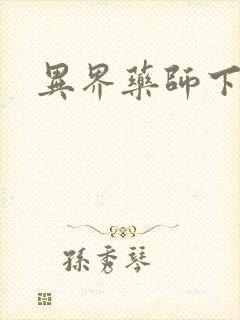 異界藥師下
孫秀琴